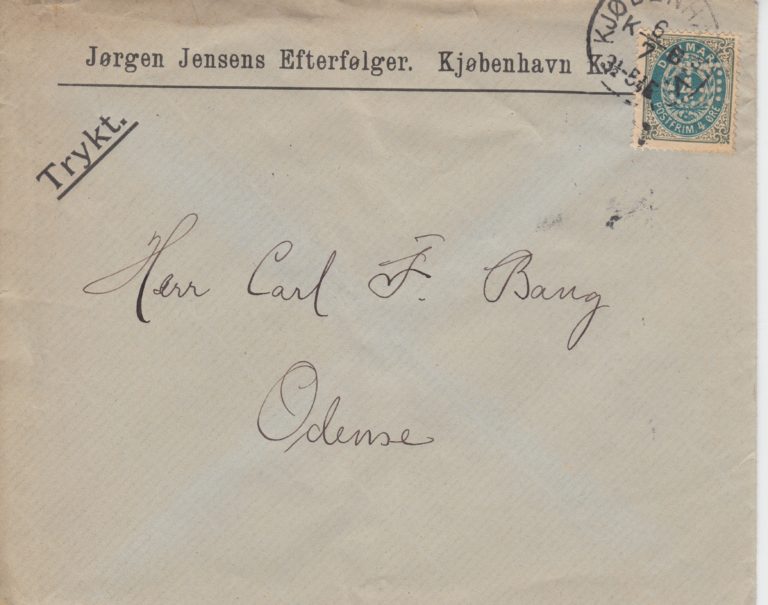 Jørgen Jensens Efterfølger. Kjøbenhavn K.
KJØBENH
K.
DANMARK
4
POSTFRIM. 4 ØRE
Trykt.
Herr Carl F. Bang
Odense